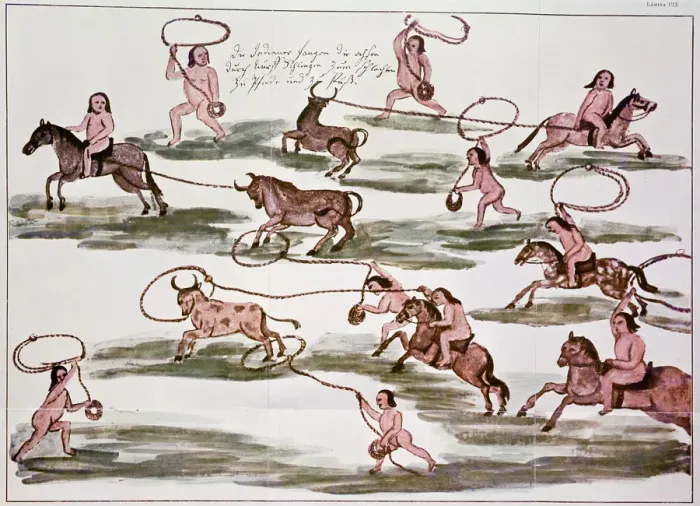 LÁMINA
Die Indianer fangen die ochsen
durch Wurff Schlingen zum schlachten
Zu Pferde und zu Fuß.